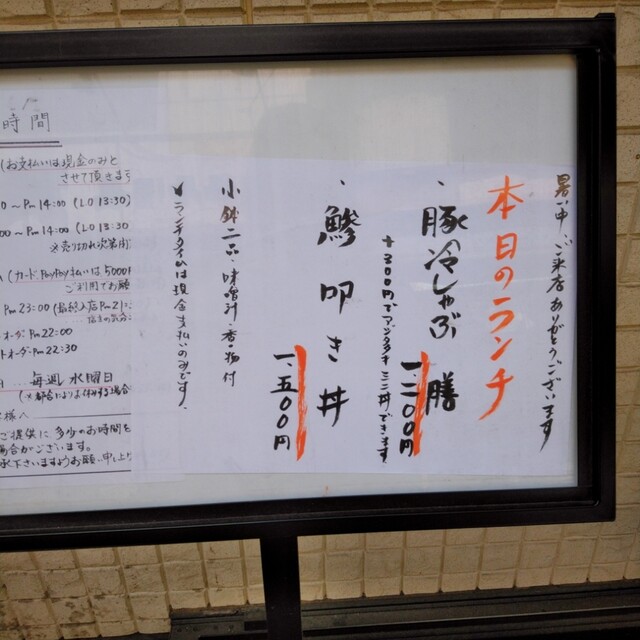 暑い中ご来店ありがとうございます
本日のランチ
・豚冷しゃぶ膳
一三〇〇円
+300円でアジタタキミニ丼できます
・鯵叩き丼
一、五〇〇円
小鉢二品・味噌汁・香の物付
ランチタイムは現金支払のみです。
時間
(お支払いは現金のみと
させて頂きます
~Pm14:00(LO 13:30)
00~Pm14:00(LO 13:30)
※売り切れ次第閉
(カードPayPay払いは5000
ご利用でお願
Pm23:00(最終入店Pm21:
オーダーPm22:00
トオーダーPm22:30
毎週水曜日
(※都合によりお休みする場合
様へ
ご提供に多少のお時間を
場合がございます。
承下さいますようお願い申し上